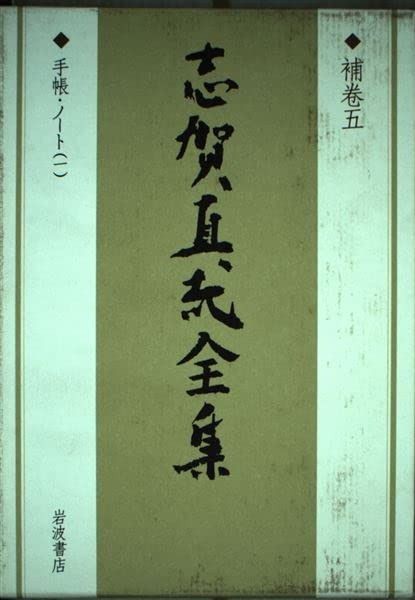 補巻五
志賀直哉全集
手帳・ノート(一)
岩波書店